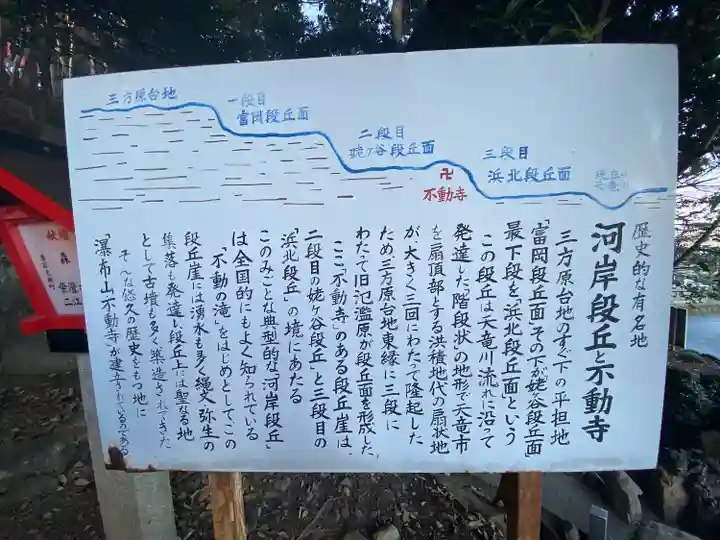 三方原台地
一段目
富岡段丘面
二段目
姥ヶ谷段丘面
三段目
浜北段丘面
現在の
天竜川
卍
不動寺
歴史的な有名地
河岸段丘と不動寺
三方原台地のすぐ下の平担地
「富岡段丘面、その下が姥谷段丘面
最下段を「浜北段丘面」という
この段丘は天竜川流れに沿って
発達した「階段状」の地形で天竜市
を扇頂部とする洪積地代の扇状地
が、大きく三回にわたって隆起した
ため三方原台地東縁に三段に
わたて旧氾濫原が段丘面を形成した
ここ「不動寺」のある段丘崖は、
二段目の姥ヶ谷段丘」と三段目の
「浜北段丘」の境にあたる
このみごとな典型的な「河岸段丘」
は全国的にもよく知られている
「不動の滝」をはじめとして、この
段丘崖には湧水も多く縄文・弥生の
集落も発達し、段丘上には聖なる地
として古墳も多く築造されてきた
そんな悠久の歴史をもつ地に
「瀑布山不動寺が建立されているのである
森
二江